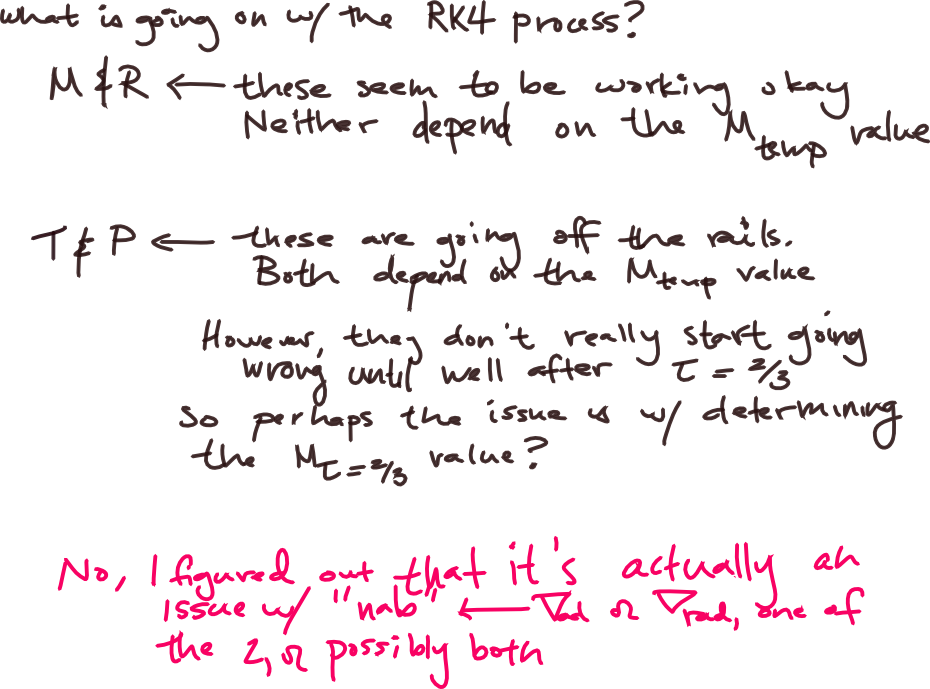 what is going on w/ the RK4 process?
M & R ← these seem to be working okay
Neither depend on the M_temp value
T & P ← these are going off the rails.
Both depend on the M_temp value
However, they don't really start going
wrong until well after τ = 2/3
So perhaps the issue is w/ determining
the M_τ=2/3 value?
No, I figured out that it's actually an
issue w/ "nab" ← ∇ad or ∇rad, one of
the 2, or possibly both